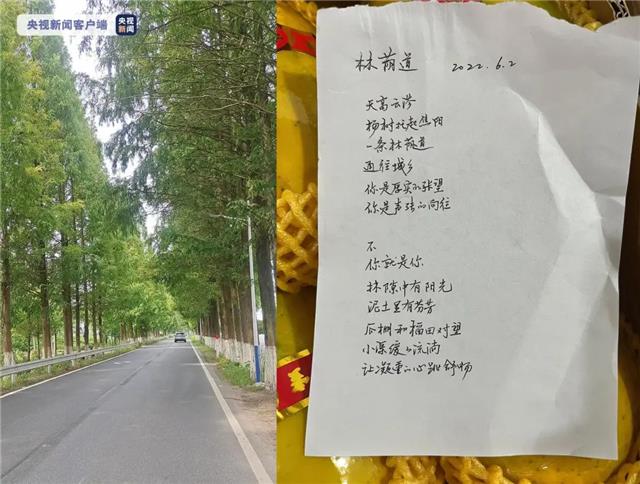 央视新闻客户端
央视
新闻
林荫道 2022.6.2
天高云淡
杨树托起焦阳
一条林荫道
通往城乡
你是厚实的张望
你是的向往
不
你就是你
林隙中有阳光
泥土里有芬芳
瓜棚和田对望
小溪缓缓流淌
让凝重的心跳舒畅